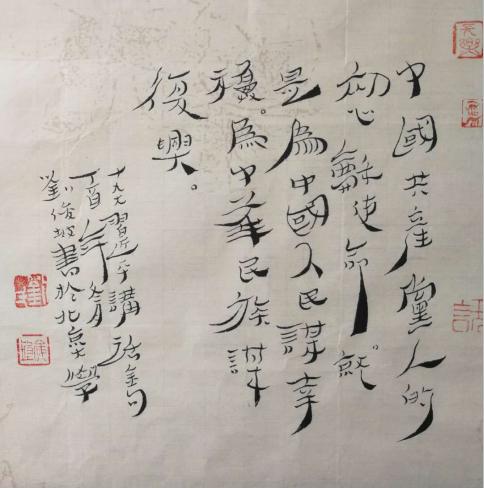 中國共產黨人的
初心龢使命。就
是為中國人民謀幸
福。為中華民族謀
復興。
十九大習近平講話金句
丁酉年月
劉俊書於北京大學